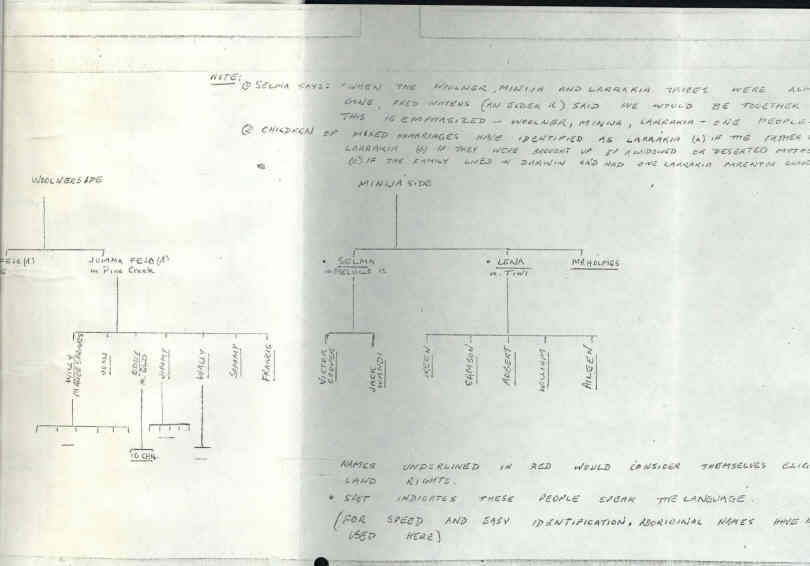 NOTE:
① SELMA SAYS: "WHEN THE WOOLNER, MINIJA AND LARRAKIA TRIBES WERE
GONE, FRED WATERS (AN ELDER R) SAID WE WOULD BE TOGETHER
THIS IS EMPHASIZED – WOOLNER, MINIJA, LARRAKIA – ONE PEOPLE.
② CHILDREN OF MIXED MARRIAGES HAVE IDENTIFIED AS LARRAKIA (a) IF THE FATHER
LARRAKIA (b) IF THEY WERE BROUGHT UP BY A WIDOWED OR DESERTED
(c) IF THE FAMILY LIVED IN DARWIN AND HAD ONE LARRAKIA PARENT
WOOLNER SIDE
MINIJA SIDE
JUMMA FEJO
m Pine Creek
• SELMA
m MELVILLE IS
• LENA
m. TIWI
MR HOLMES
WILLY
JIMMY
WALLY
SAMMY
FRANCIS
VICTOR
JACK
KEEN
SAMSON
ROBERT
WILLIAM
AILEEN
10 CHN.
NAMES UNDERLINED IN RED WOULD CONSIDER THEMSELVES
LAND RIGHTS.
• SPOT INDICATES THESE PEOPLE SPEAK THE LANGUAGE.
(FOR SPEED AND EASY IDENTIFICATION, ABORIGINAL NAMES HAVE
USED HERE)